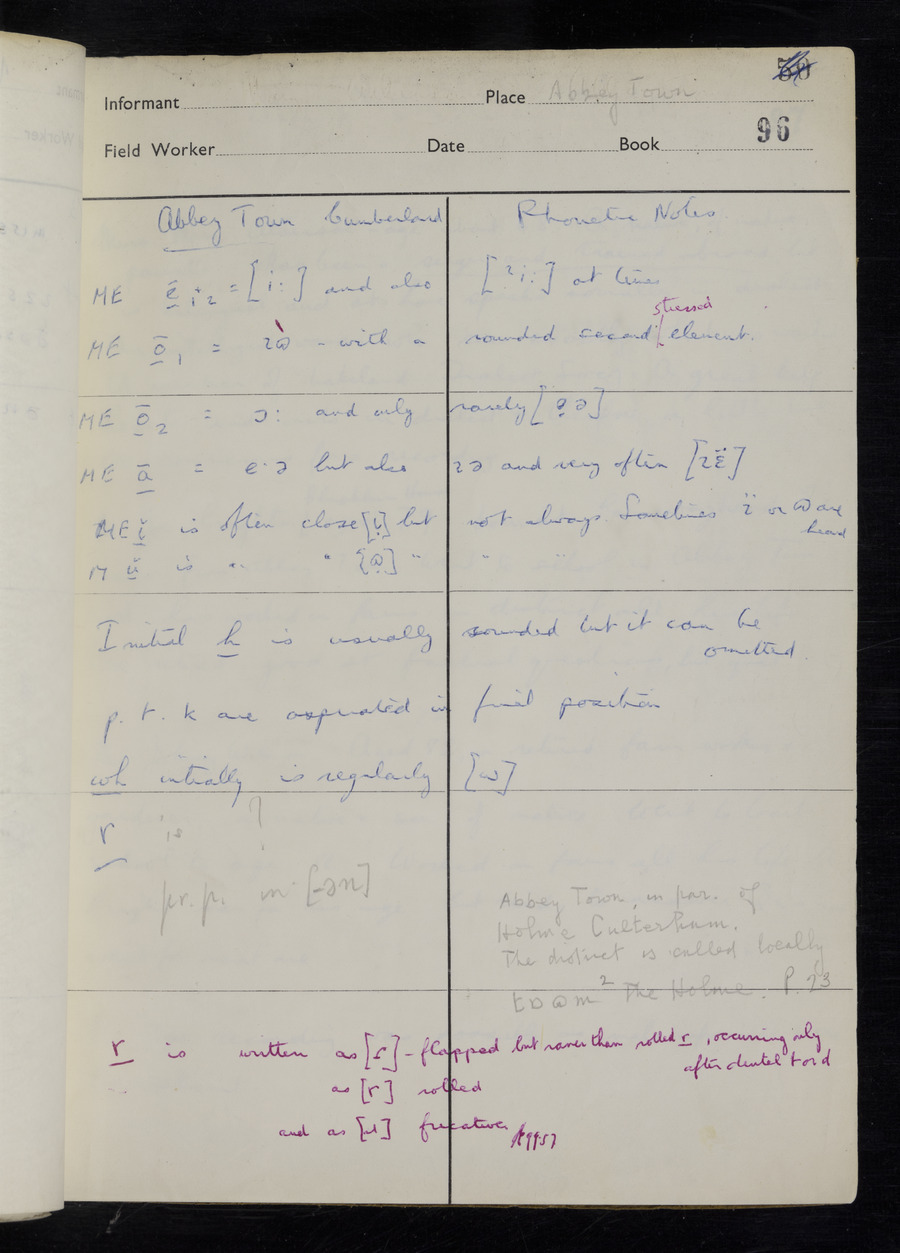 58
Informant Place Abbey Town
96
Field Worker Date Book
Abbey Town Cumberland Phonetic Notes
ME ē 1 2 = [i:] and also [ɪi:] at times
stressed
ME ō 1 = ɪɷ̀ - with a rounded second element.
ME ō 2 = ɔ: and only rarely [ə]
ME ā = e·ə but also ɪə and very often [ɪɛ̈]
ME ĭ is often close [ɪ̣] but not always. Sometimes ɪ̈ or ɷ are
heard
M ŭ is " " [ɷ̣] " " "
Initial h is usually sounded but it can be
omitted.
p. t. k are aspirated in final position
wh initially is regularly [w]
r is ?
pr.p. in [-ən]
Abbey Town, in par. of
Holme Culterham.
The district is called locally
The Holme. P. 23
r is written as [ɾ] - flapped but rarer than rolled r, occurring only
after dental t or d
as [r] rolled
and as [ɹ] fricative